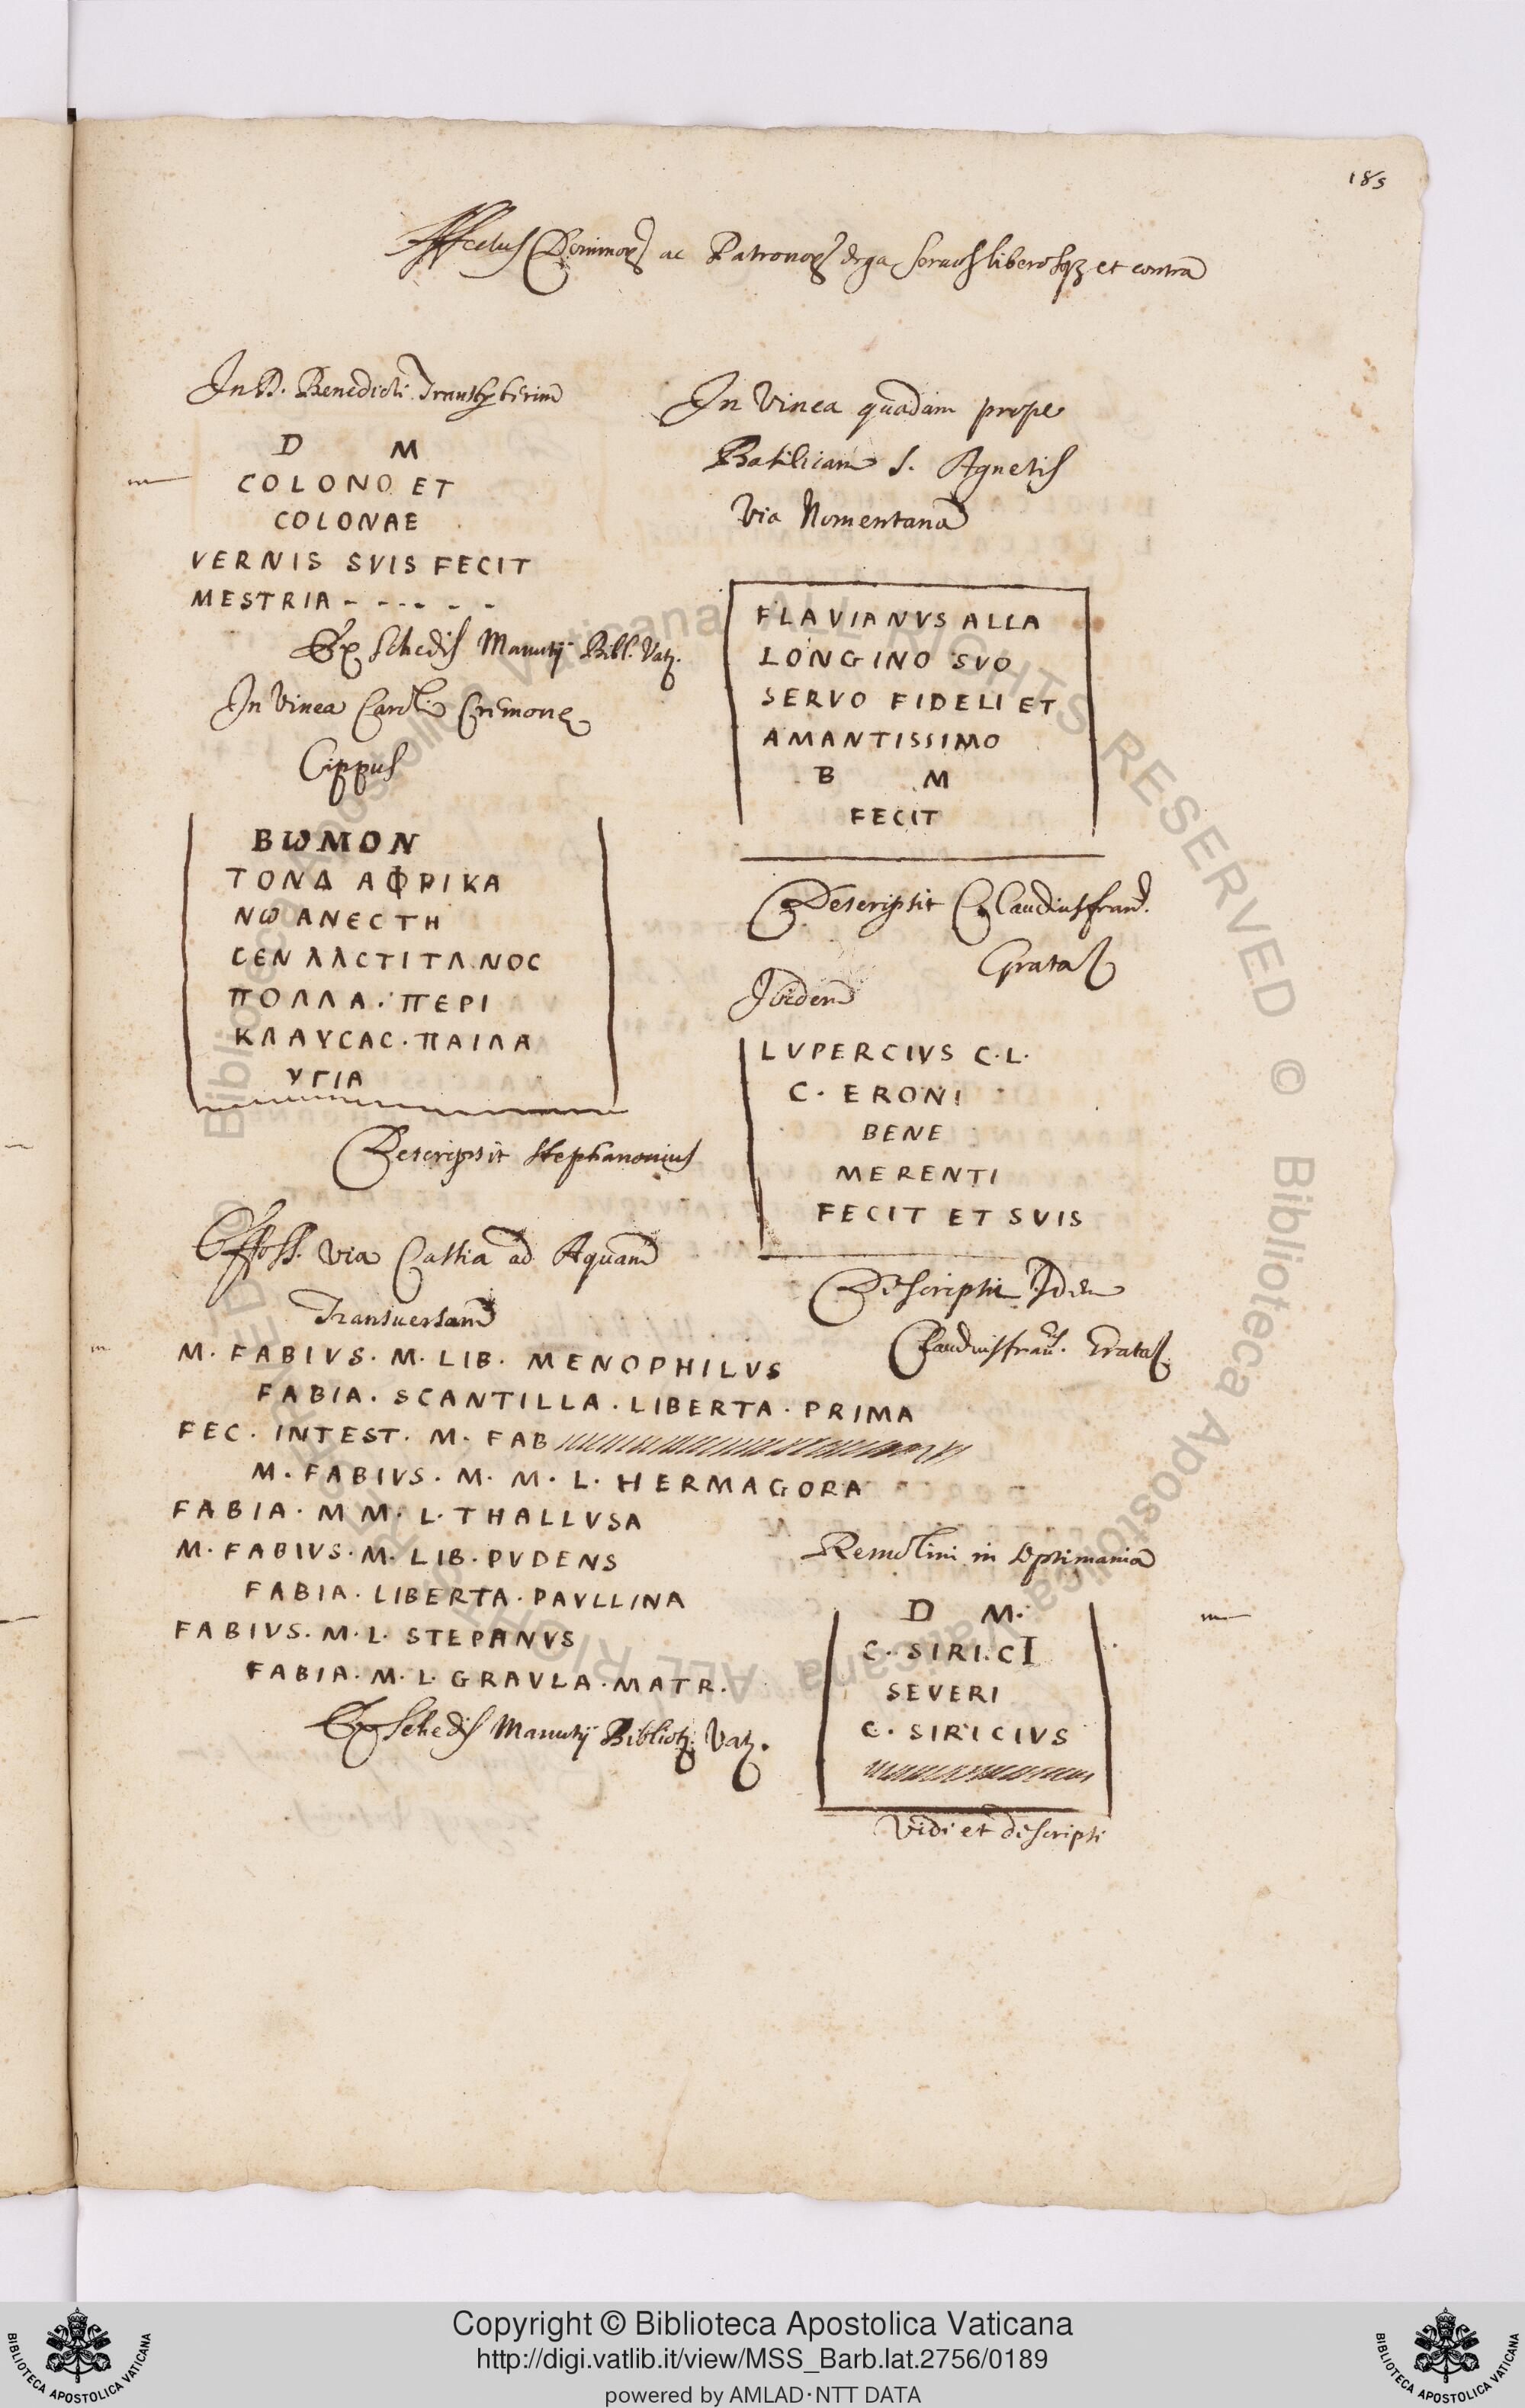 185
Affectus Dominor̄ ac Patronor̄ erga seruos liberosq; et contra
In D. Benedicti Transtyberim
D M
COLONO ET
COLONAE
VERNIS SVIS FECIT
MESTRIA - - - - - -
Ex Schedis Manutij Bibl. Vat.
In Vinea Caroli Cremone
Cippus
ΒΩΜΟΝ
ΤΟΝΔ ΑΦΡΙΚΑ
ΝΩ ΑΝΕCΤΗ
CΕΝ ΛΛCΤΙΤΛΝΟC
ΠΟΛΛΑ · ΠΕΡΙ
ΚΛΑΥCΑC · ΠΑΙΛΑ
ΥΓΙΑ
Descripsit Stephanonius
Effoss. via Cassia ad Aquam
Transuersam
M. FABIVS. M. LIB. MENOPHILVS
FABIA. SCANTILLA. LIBERTA. PRIMA
FEC. INTEST. M. FAB
M. FABIVS. M. M. L. HERMAGORA
FABIA. M M. L. THALLVSA
M. FABIVS. M. LIB. PVDENS
FABIA. LIBERTA. PAVLLINA
FABIVS. M. L. STEPANVS
FABIA. M. L. GRAVLA. MATR.
Ex Schedis Manutij Biblioth. Vat.
In Vinea quadam prope
Basilicam S. Agnetis
Via Nomentana
FLAVIANVS ALLA
LONGINO SVO
SERVO FIDELI ET
AMANTISSIMO
B M
FECIT
Descripsit Claudius fran.
Gratas
Ibidem
LVPERCIVS C. L.
C. ERONI
BENE
MERENTI
FECIT ET SVIS
Descripsit Idem
Claudius fran. Gratas
Remolini in Optimania
D M.
C. SIRI.CI
SEVERI
C. SIRICIVS
Vidi et descripsi
Copyright © Biblioteca Apostolica Vaticana
http://digi.vatlib.it/view/MSS_Barb.lat.2756/0189
powered by AMLAD·NTT DATA
BIBLIOTECA APOSTOLICA VATICANA
BIBLIOTECA APOSTOLICA VATICANA